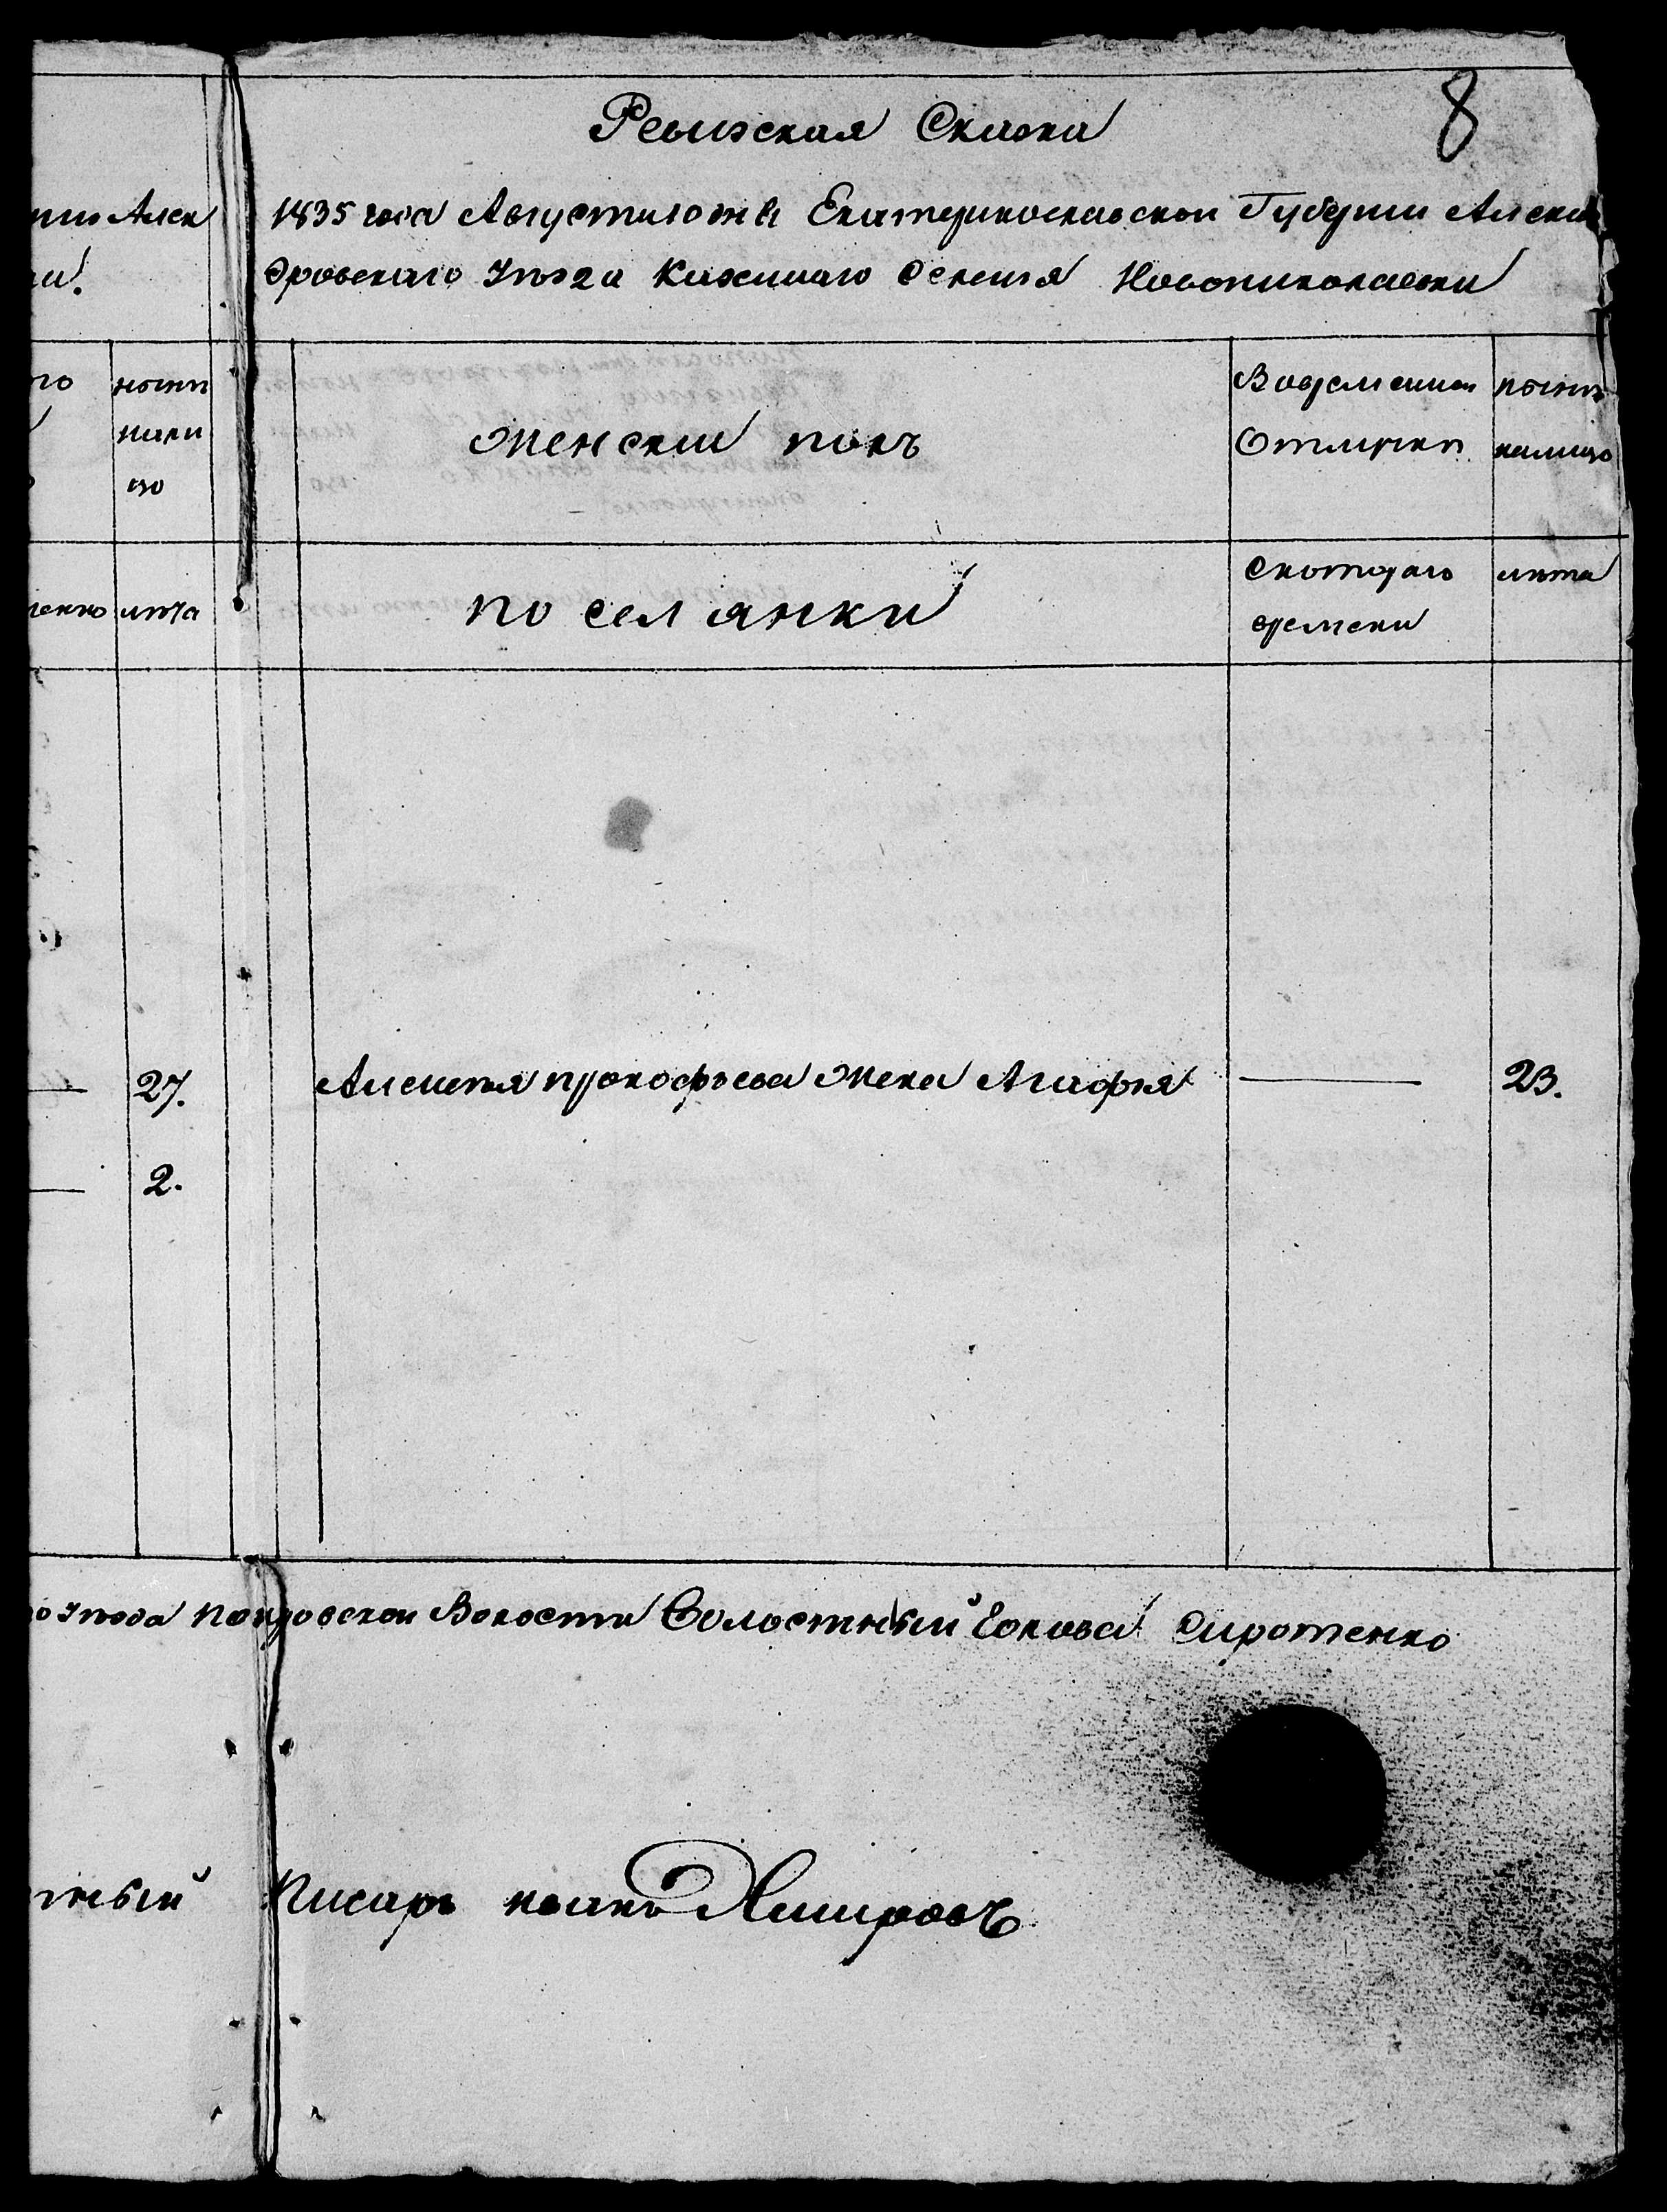 8
Ревизская Сказка
Алек 1835 года Августа 10 дня Екатеринославской Губернии Алексан
дровскаго Уезда Казеннаго Селения Новониколаевки
ныне
нали
цо
Женский полъ
Вовременной
Отлучки
ныне
налицо
лета
поселянки
Скотораго
времени
лета
27.
Алексея прокофьева жена Агафия
23.
2.
уезда Покровской Волости Волостный Голова Сиротенко
тный Писарь